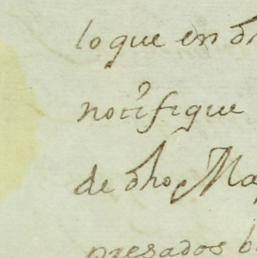 lo que en
notifique
de dho Ma
presados